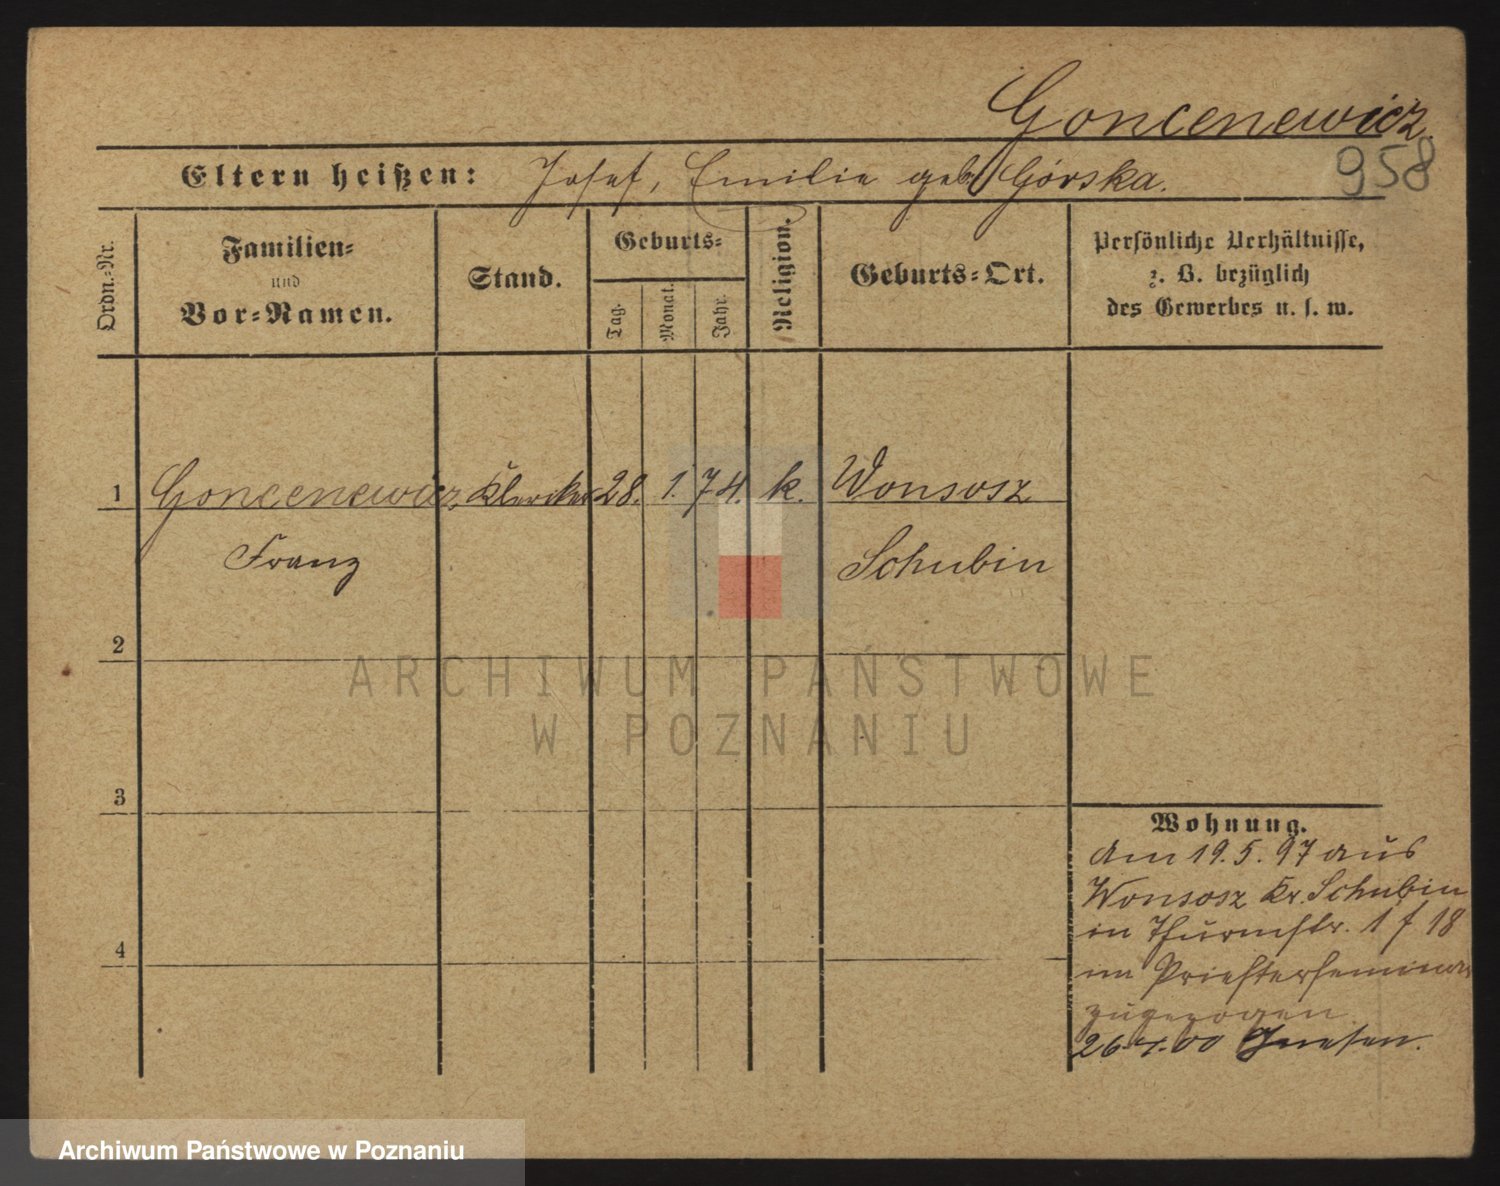 Goncenewicz.
958
Eltern heißen: Josef, Emilie geb. Górska.
Ordn.-Nr.
Familien-
und
Vor-Namen.
Stand.
Geburts-
Tag.
Monat.
Jahr.
Religion.
Geburts-Ort.
Persönliche Verhältnisse,
z. B. bezüglich
des Gewerbes u. s. w.
1 Goncenewicz, Kleriker 28. 1. 74. k. Wonsosz
Franz Schubin
2
3
4
Wohnung.
Am 19.5.97 aus
Wonsosz Kr. Schubin
in Thurmstr. 1 f 18
im Priesterseminar
zugezogen
00 Gnesen.
ARCHIWUM PAŃSTWOWE
W POZNANIU
Archiwum Państwowe w Poznaniu